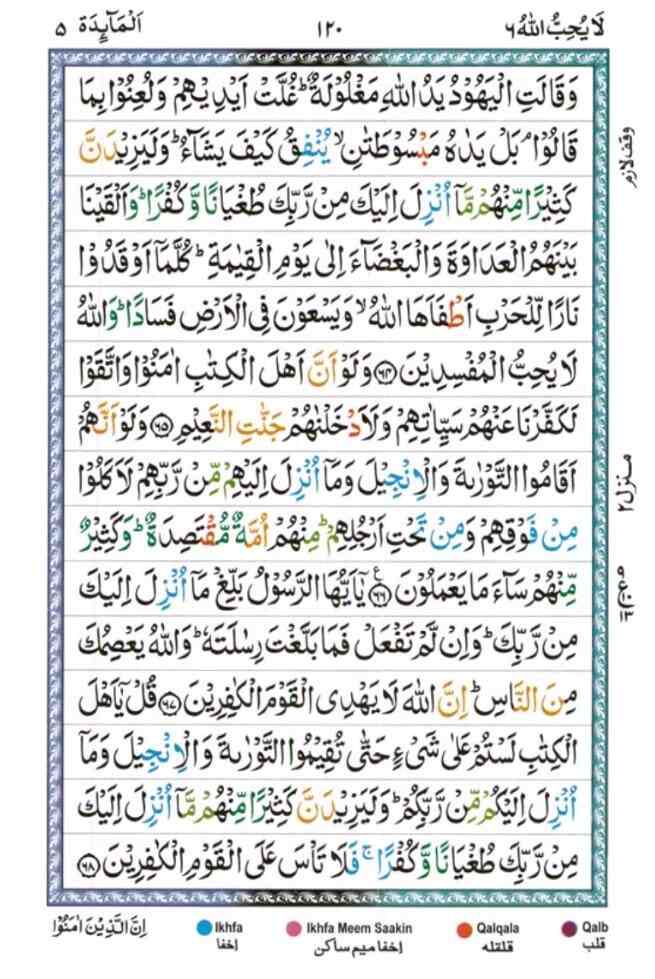 لَا يُحِبُّ اللهُ ٦ ١٢٠ اَلْمَآئِدَة ٥
وَقَالَتِ الْيَهُوْدُ يَدُ اللهِ مَغْلُوْلَةٌ ؕ غُلَّتْ اَيْدِيْهِمْ وَلُعِنُوْا بِمَا
قَالُوْا ۘ بَلْ يَدٰهُ مَبْسُوْطَتٰنِ ۙ يُنْفِقُ كَيْفَ يَشَآءُ ؕ وَلَيَزِيْدَنَّ
وقف لازم
كَثِيْرًا مِّنْهُمْ مَّاۤ اُنْزِلَ اِلَيْكَ مِنْ رَّبِّكَ طُغْيَانًا وَّكُفْرًا ؕ وَاَلْقَيْنَا
بَيْنَهُمُ الْعَدَاوَةَ وَالْبَغْضَآءَ اِلٰى يَوْمِ الْقِيٰمَةِ ؕ كُلَّمَاۤ اَوْقَدُوْا
نَارًا لِّلْحَرْبِ اَطْفَاَهَا اللهُ ۙ وَيَسْعَوْنَ فِى الْاَرْضِ فَسَادًا ؕ وَاللهُ
لَا يُحِبُّ الْمُفْسِدِيْنَ ﴿٦٤﴾ وَلَوْ اَنَّ اَهْلَ الْكِتٰبِ اٰمَنُوْا وَاتَّقَوْا
لَكَفَّرْنَا عَنْهُمْ سَيِّاٰتِهِمْ وَلَاَدْخَلْنٰهُمْ جَنّٰتِ النَّعِيْمِ ﴿٦٥﴾ وَلَوْ اَنَّهُمْ
اَقَامُوا التَّوْرٰىةَ وَالْاِنْجِيْلَ وَمَاۤ اُنْزِلَ اِلَيْهِمْ مِّنْ رَّبِّهِمْ لَاَكَلُوْا
منزل ٢
مِنْ فَوْقِهِمْ وَمِنْ تَحْتِ اَرْجُلِهِمْ ؕ مِنْهُمْ اُمَّةٌ مُّقْتَصِدَةٌ ؕ وَكَثِيْرٌ
مِّنْهُمْ سَآءَ مَا يَعْمَلُوْنَ ﴿٦٦﴾ ع يٰۤاَيُّهَا الرَّسُوْلُ بَلِّغْ مَاۤ اُنْزِلَ اِلَيْكَ
مِنْ رَّبِّكَ ؕ وَاِنْ لَّمْ تَفْعَلْ فَمَا بَلَّغْتَ رِسٰلَتَهٗ ؕ وَاللهُ يَعْصِمُكَ
مِنَ النَّاسِ ؕ اِنَّ اللهَ لَا يَهْدِى الْقَوْمَ الْكٰفِرِيْنَ ﴿٦٧﴾ قُلْ يٰۤاَهْلَ
الْكِتٰبِ لَسْتُمْ عَلٰى شَىْءٍ حَتّٰى تُقِيْمُوا التَّوْرٰىةَ وَالْاِنْجِيْلَ وَمَاۤ
اُنْزِلَ اِلَيْكُمْ مِّنْ رَّبِّكُمْ ؕ وَلَيَزِيْدَنَّ كَثِيْرًا مِّنْهُمْ مَّاۤ اُنْزِلَ اِلَيْكَ
مِنْ رَّبِّكَ طُغْيَانًا وَّكُفْرًا ۚ فَلَا تَاْسَ عَلَى الْقَوْمِ الْكٰفِرِيْنَ ﴿٦٨﴾
اِنَّ الَّذِيْنَ اٰمَنُوْا
Ikhfa Ikhfa Meem Saakin Qalqala Qalb
اخفا اخفا میم ساکن قلقله قلب